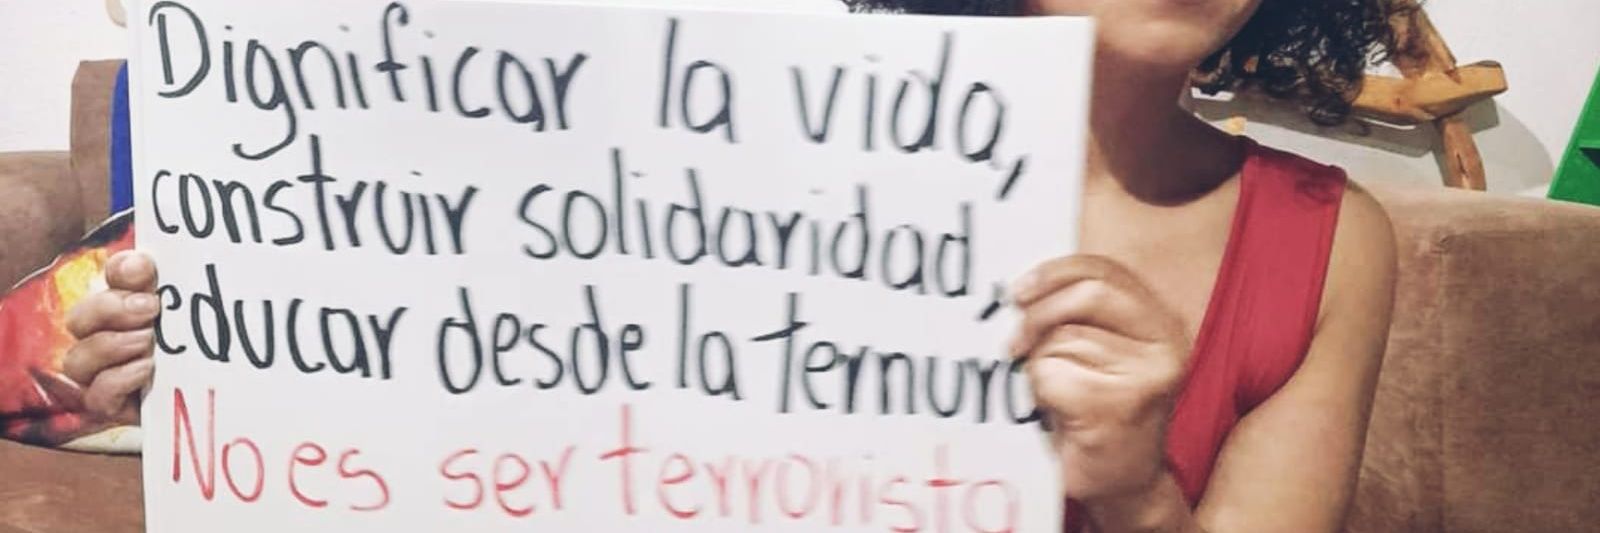 Dignificar la vida,
construir solidaridad,
educar desde la ternura
No es ser terrorista